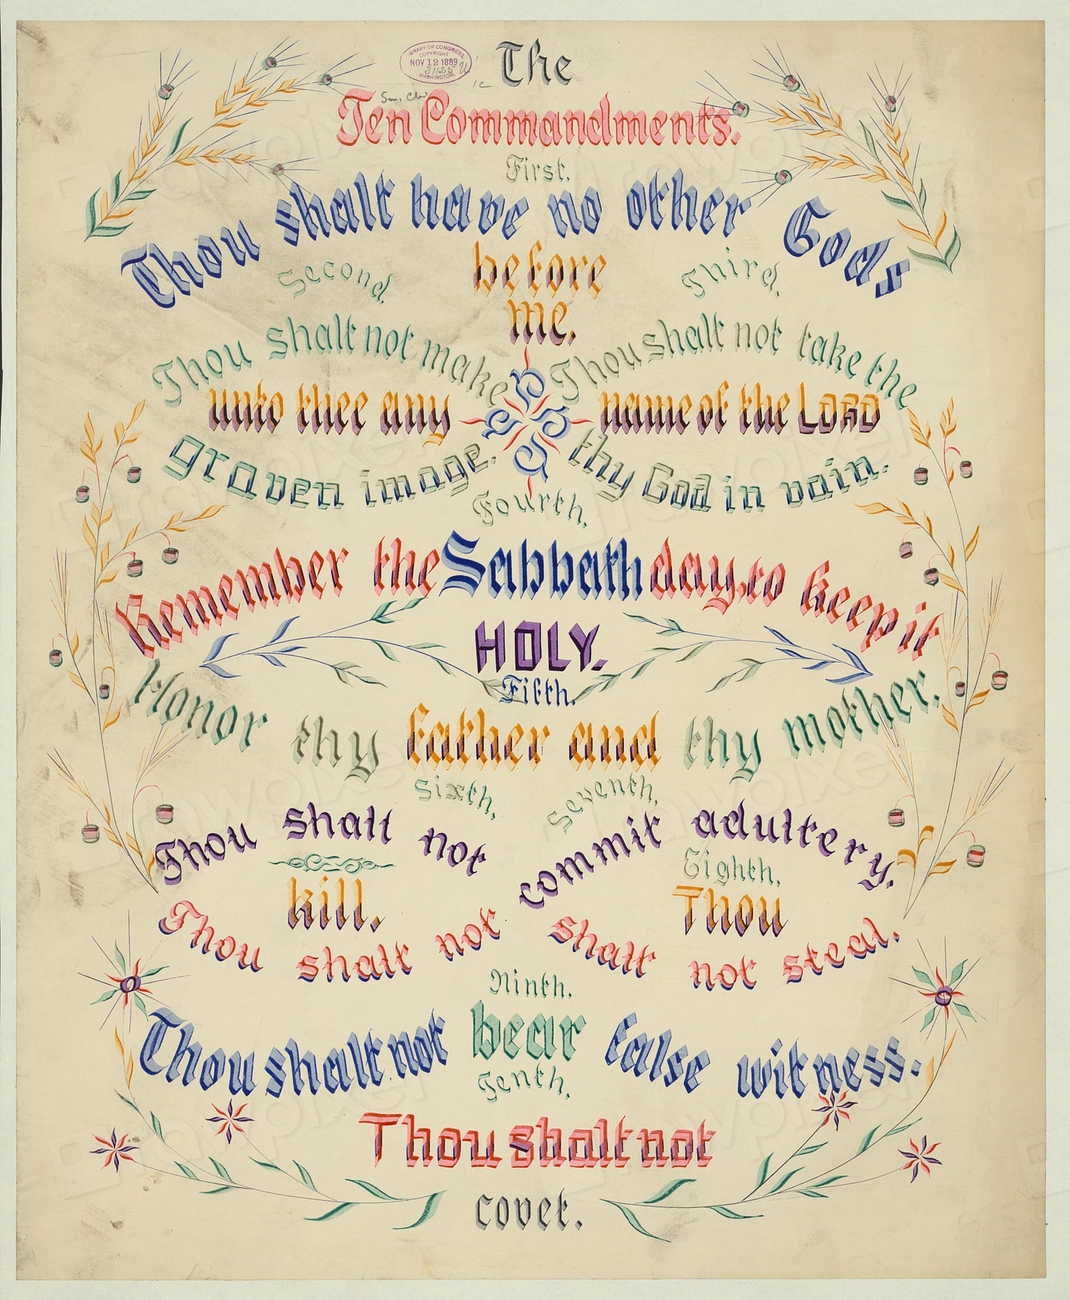 LIBRARY OF CONGRESS,
COPYRIGHT
NOV 12 1889
WASHINGTON
The
Ten Commandments.
First.
Thou shalt have no other Gods
before
me.
Second,
Thou shalt not make
unto thee any
graven image.
Third,
Thou shalt not take the
name of the LORD
thy God in vain.
Fourth,
Remember the Sabbath day, to keep it
HOLY.
Fifth.
Honor thy father and thy mother.
Sixth,
Thou shalt not
kill.
Seventh,
Thou shalt not commit adultery.
Eighth,
Thou
shalt not steal.
Ninth.
Thou shalt not bear false witness.
Tenth,
Thou shalt not
covet.
rawpixel